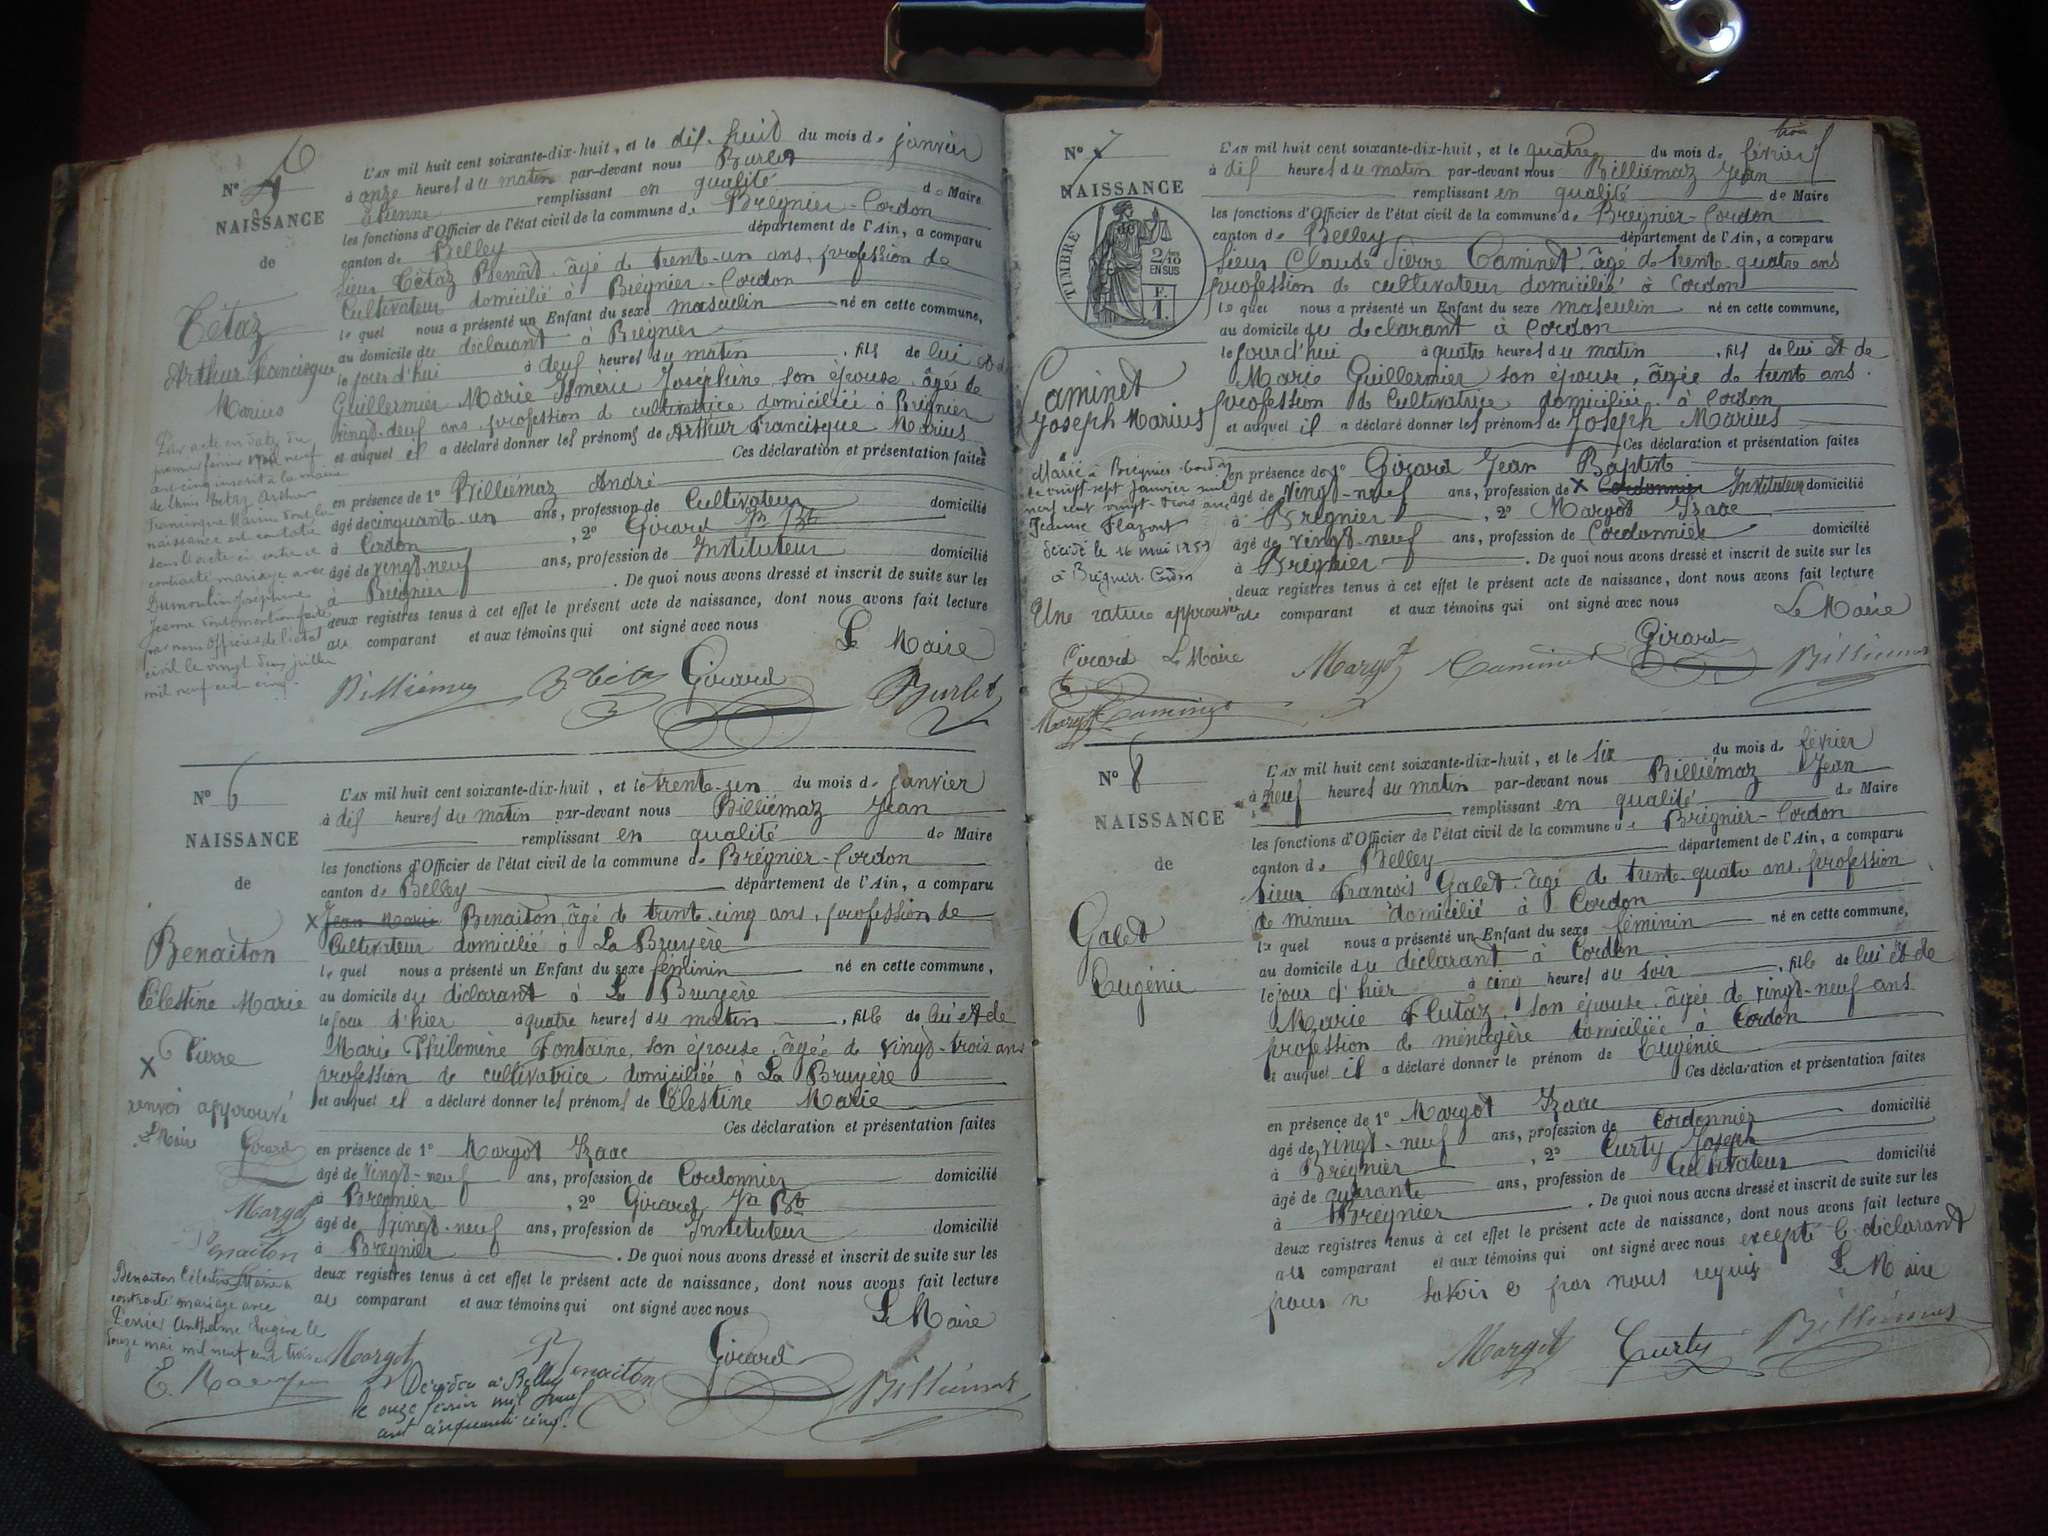 N°
NAISSANCE
de
Tétaz
Arthur Francisque
Marius
L'AN mil huit cent soixante-dix-huit, et le dix-huit du mois de janvier
à onze heures du matin par-devant nous Burlet
Etienne remplissant en qualité de Maire
les fonctions d'Officier de l'état civil de la commune de Brégnier-Cordon
canton de Belley département de l'Ain, a comparu
Sieur Tétaz Benoît, âgé de trente-un ans, profession de
Cultivateur domicilié à Brégnier-Cordon
lequel nous a présenté un Enfant du sexe masculin né en cette commune,
au domicile du déclarant à Bregnier
le jour d'hui à deux heures du matin, fils de lui et de
Guillermier Marie Joséphine, son épouse, âgée de
vingt-neuf ans, profession de cultivatrice domiciliée à Brégnier
et auquel il a déclaré donner les prénoms de Arthur Francisque Marius
Ces déclaration et présentation faites
en présence de 1° Billiémaz André
âgé de cinquante-un ans, profession de Cultivateur domicilié
à Cordon, 2° Girard Jn Bt
âgé de vingt-neuf ans, profession de Instituteur domicilié
à Bregnier. De quoi nous avons dressé et inscrit de suite sur les
deux registres tenus à cet effet le présent acte de naissance, dont nous avons fait lecture
au comparant et aux témoins qui ont signé avec nous
Le Maire
Billiémaz B Tétaz Girard Burlet
Par acte en date du
premier février 1900 neuf
cent cinq inscrit à la mairie
Francisque Marius dont la
naissance est constatée
dans l'acte ci contre a
contracté mariage avec
Dumoulin Joséphine
Jeanne dont mention faite
par nous Officier de l'état
civil le vingt deux juillet
mil neuf cent cinq.
N° 6
NAISSANCE
de
Benaiton
Célestine Marie
x Pierre
renvoi approuvé
Le Maire Girard
Margot
Benaiton
L'AN mil huit cent soixante-dix-huit, et le trente-un du mois de janvier
à dix heures du matin par-devant nous Billiémaz Jean
remplissant en qualité de Maire
les fonctions d'Officier de l'état civil de la commune de Brégnier-Cordon
canton de Belley département de l'Ain, a comparu
x Jean Marie Benaiton, âgé de trente-cinq ans, profession de
Cultivateur domicilié à La Bruyère
lequel nous a présenté un Enfant du sexe féminin né en cette commune,
au domicile du déclarant à La Bruyère
le jour d'hier à quatre heures du matin, fille de lui et de
Marie Philomène Fontaine, son épouse, âgée de vingt-trois ans
profession de cultivatrice domiciliée à La Bruyère
et auquel il a déclaré donner les prénoms de Célestine Marie
Ces déclaration et présentation faites
en présence de 1° Margot Izaac
âgé de vingt-neuf ans, profession de Cordonnier domicilié
à Bregnier, 2° Girard Jn Bt
âgé de vingt-neuf ans, profession de Instituteur domicilié
à Bregnier. De quoi nous avons dressé et inscrit de suite sur les
deux registres tenus à cet effet le présent acte de naissance, dont nous avons fait lecture
au comparant et aux témoins qui ont signé avec nous
Le Maire
Margot Benaiton Girard Billiémaz
Benaiton Célestine Marie a
contracté mariage avec
Perrier Anthelme Eugène le
douze mai mil neuf cent trois
Décédée à Belley
le onze février mil neuf
cent cinquante cinq.
N° 7
NAISSANCE
de
TIMBRE
2/10
EN SUS
F.
1.
Caminet
Joseph Marius
L'AN mil huit cent soixante-dix-huit, et le quatre du mois de février
à dix heures du matin par-devant nous Billiémaz Jean
remplissant en qualité de Maire
les fonctions d'Officier de l'état civil de la commune de Bregnier-Cordon
canton de Belley département de l'Ain, a comparu
Sieur Claude Pierre Caminet, âgé de trente-quatre ans
profession de cultivateur domicilié à Cordon
lequel nous a présenté un Enfant du sexe masculin né en cette commune,
au domicile du déclarant à Cordon
le jourd'hui à quatre heures du matin, fils de lui et de
Marie Guillermier son épouse, âgée de trente ans.
profession de Cultivatrice domiciliée à Cordon
et auquel il a déclaré donner les prénoms de Joseph Marius
Ces déclaration et présentation faites
en présence de 1° Girard Jean Baptiste
âgé de vingt-neuf ans, profession de x Cordonnier Instituteur domicilié
à Bregnier, 2° Margot Izaac
âgé de vingt-neuf ans, profession de Cordonnier domicilié
à Bregnier. De quoi nous avons dressé et inscrit de suite sur les
deux registres tenus à cet effet le présent acte de naissance, dont nous avons fait lecture
au comparant et aux témoins qui ont signé avec nous
Le Maire
Margot Caminet Girard Billiémaz
Marié à Brégnier-Cordon
le vingt-sept janvier mil
neuf cent vingt-trois avec
Jeanne
décédé le 16 mai 1959
à Brégnier-Cordon
Une rature approuvée
Girard Le Maire
Margot Caminet
N° 8
NAISSANCE
de
Galet
Eugénie
L'AN mil huit cent soixante-dix-huit, et le six du mois de février
à neuf heures du matin par-devant nous Billiémaz Jean
remplissant en qualité de Maire
les fonctions d'Officier de l'état civil de la commune de Brégnier-Cordon
canton de Belley département de l'Ain, a comparu
Sieur François Galet, âgé de trente-quatre ans, profession
de mineur domicilié à Cordon
lequel nous a présenté un Enfant du sexe féminin né en cette commune,
au domicile du déclarant à Cordon
le jour d'hier à cinq heures du soir, fille de lui et de
Marie Flutaz, son épouse, âgée de vingt-neuf ans
profession de ménagère domiciliée à Cordon
et auquel il a déclaré donner le prénom de Eugénie
Ces déclaration et présentation faites
en présence de 1° Margot Izaac
âgé de vingt-neuf ans, profession de Cordonnier domicilié
à Bregnier, 2° Curty Joseph
âgé de quarante ans, profession de Cultivateur domicilié
à Bregnier. De quoi nous avons dressé et inscrit de suite sur les
deux registres tenus à cet effet le présent acte de naissance, dont nous avons fait lecture
au comparant et aux témoins qui ont signé avec nous excepté le déclarant
pour ne savoir de par nous requis Le Maire
Margot Curty Billiémaz